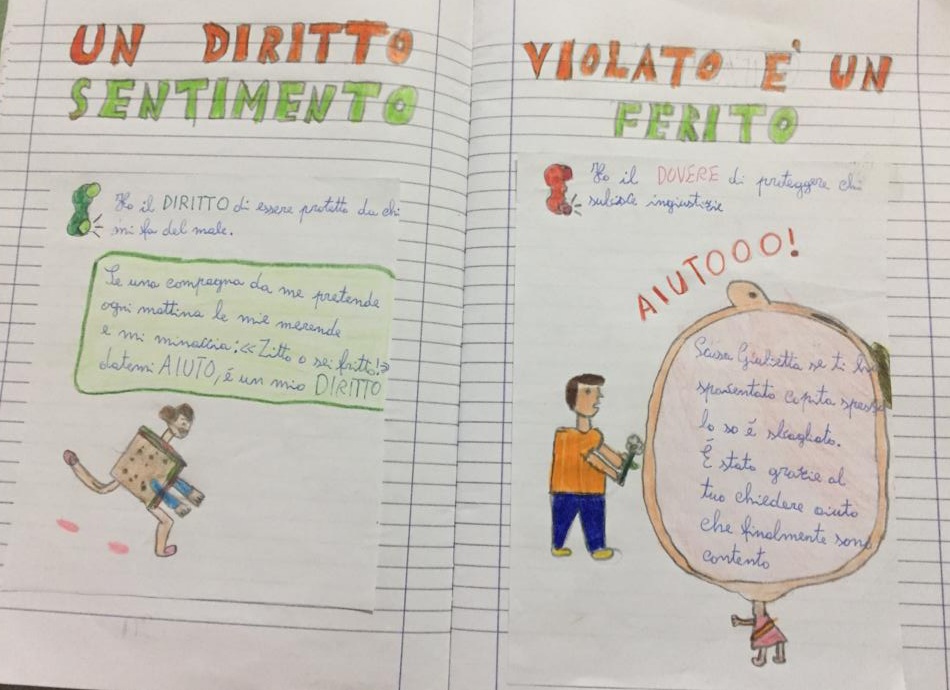 UN DIRITTO VIOLATO E' UN
SENTIMENTO FERITO
Ho il DIRITTO di essere protetto da chi
mi fa del male.
Se una compagna da me pretende
ogni mattina le mie merende
e mi minaccia:<<Zitto o sei fritto!>>
datemi AIUTO, é un mio DIRITTO
Ho il DOVERE di proteggere chi
subisce ingiustizie
AIUTOOO!
Scusa Giulietta se ti ho
spaventato capita spesso
lo so é sbagliato.
É stato grazie al
tuo chiedere aiuto
che finalmente sono
contento